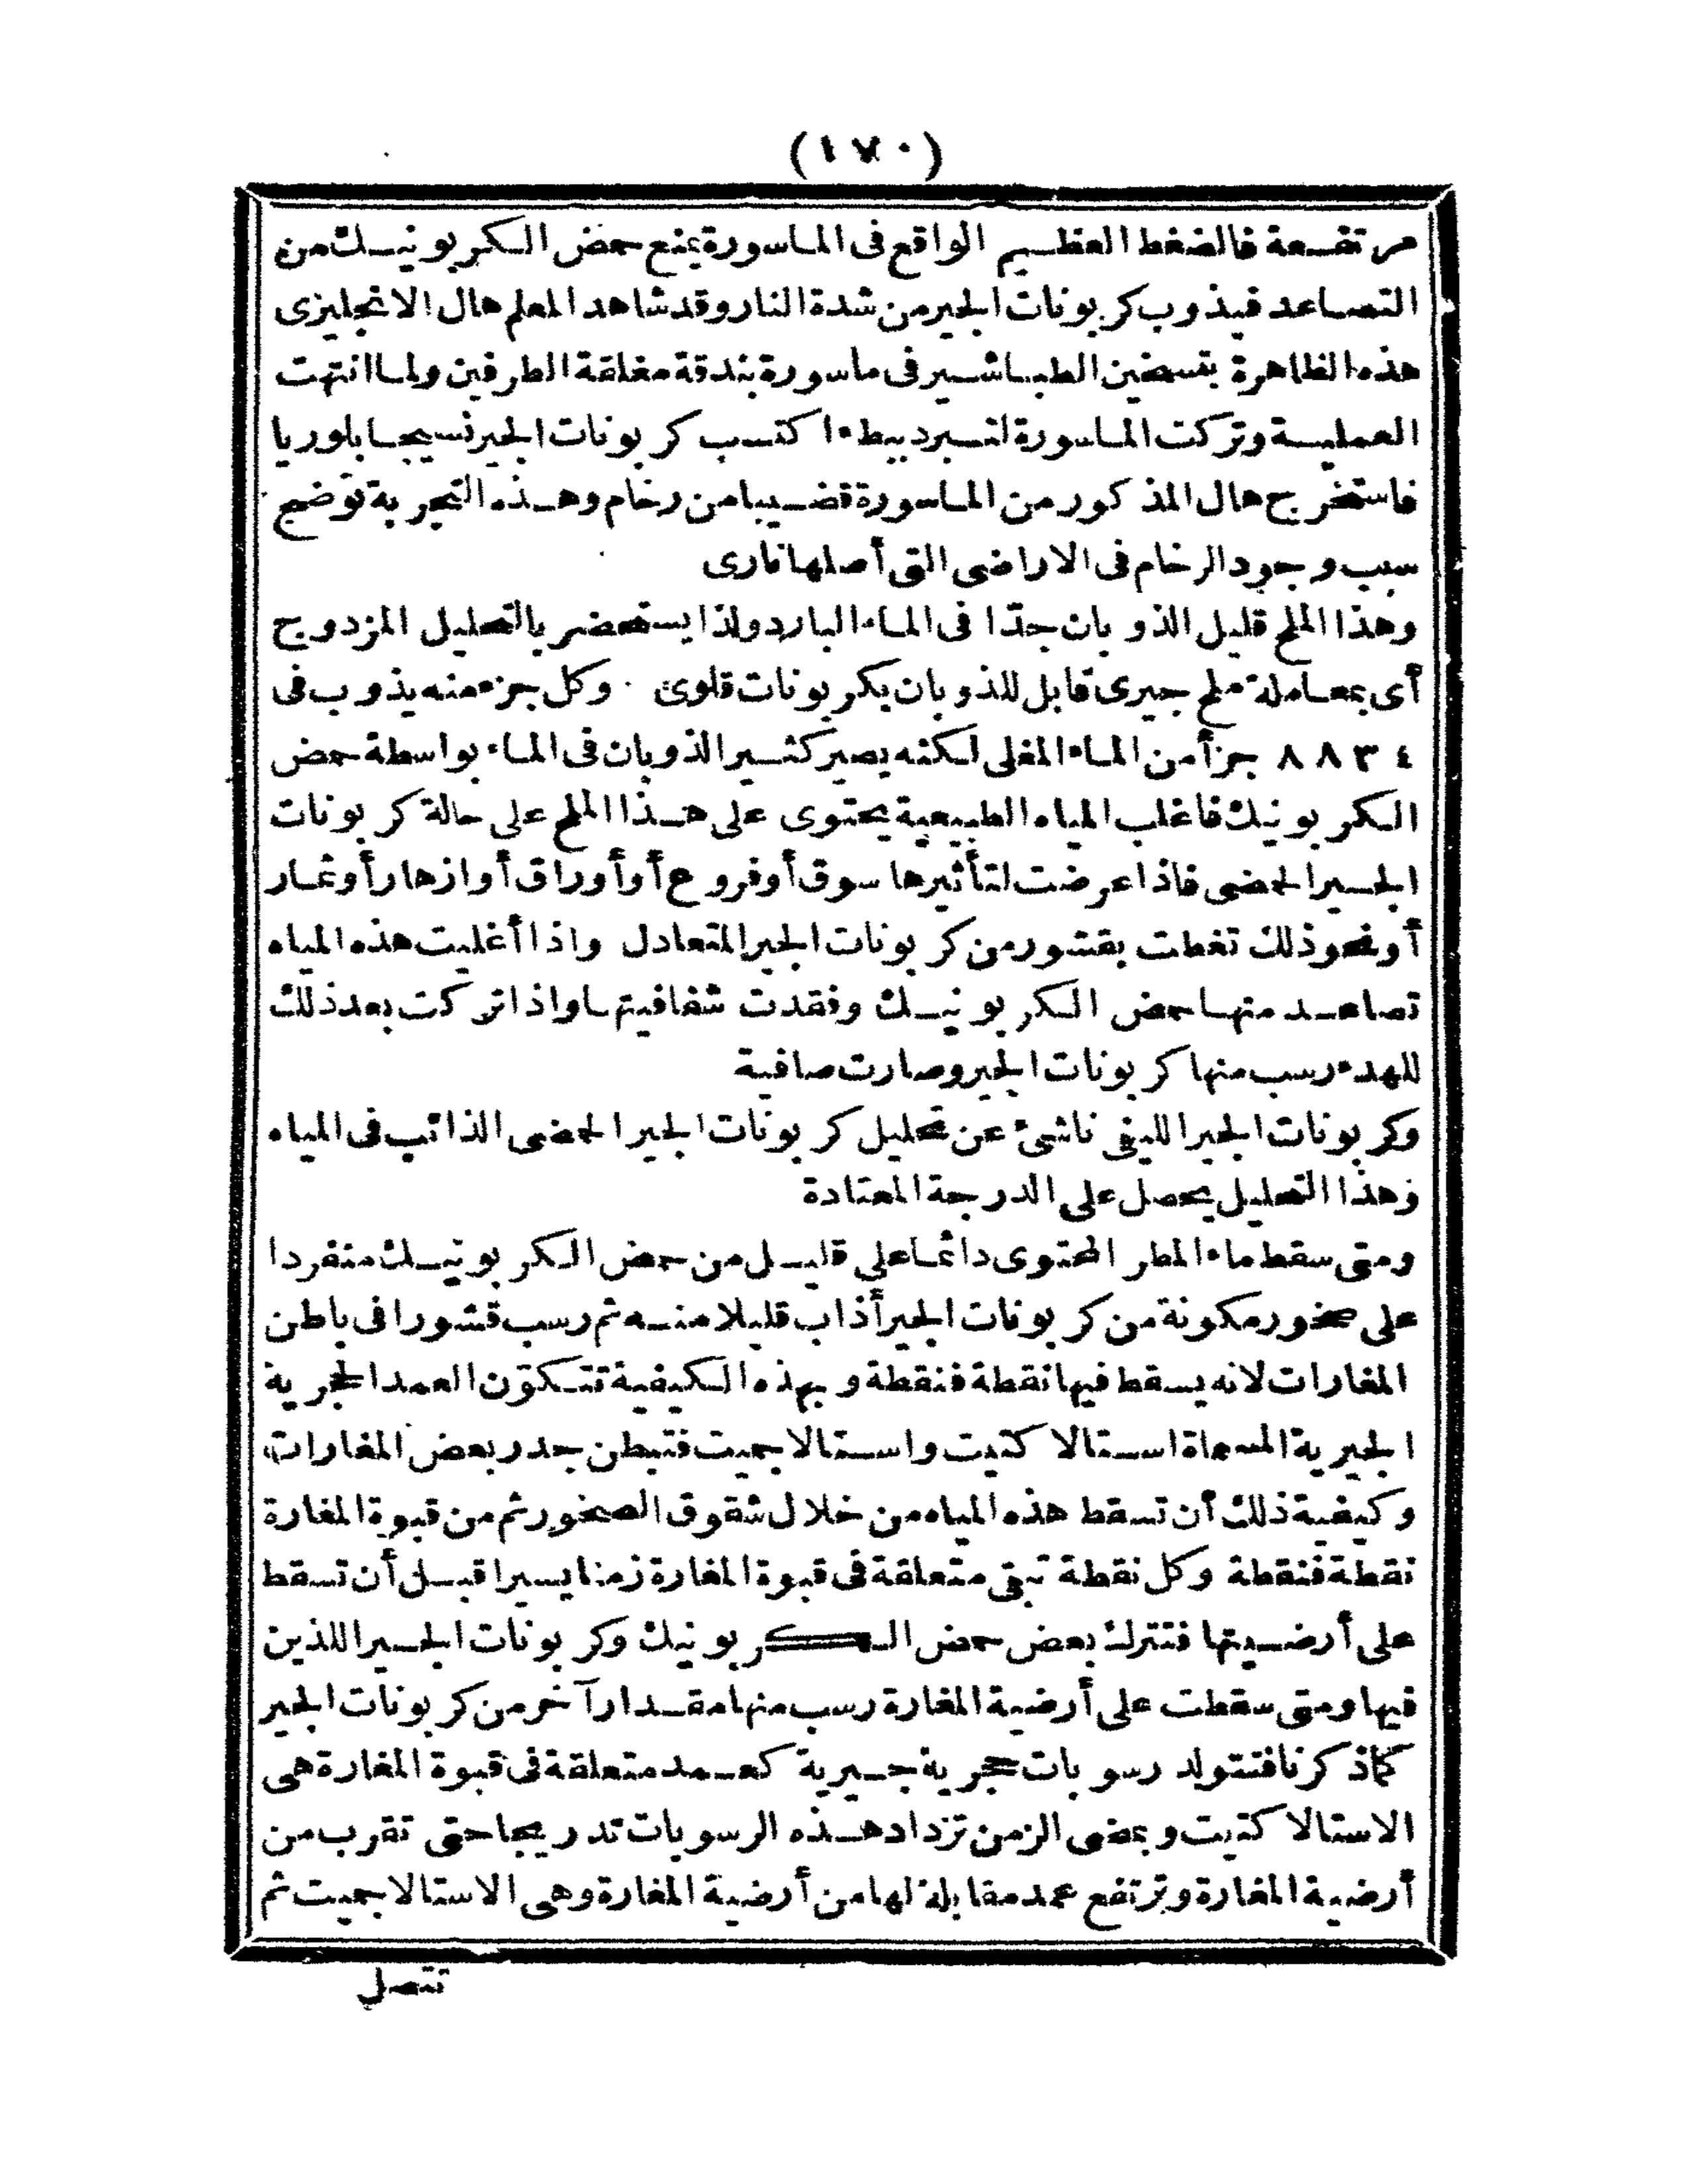 (١٧٠)
مرتفعة فالضغط العظيم الواقع فى الماسورة يمنع حمض الكربونيك من
التصاعد فيذوب كربونات الجير من شدة النار وقد شاهد المعلم هال الانجليزى
هذه الظاهرة بتسخين الطباشير فى ماسورة بندقة مغلقة الطرفين ولما انتهت
العملية وتركت الماسورة لتبرد ببطء اكتسب كربونات الجير نسيجا بلوريا
فاستخرج هال المذكور من الماسورة قضيبا من رخام وهذه التجربة توضح
سبب وجود الرخام فى الاراضى التى أصلها نارى
وهذا الملح قليل الذوبان جدّا فى الماء البارد ولذا يستحضر بالتحليل المزدوج
أى بمعاملة ملح جيرى قابل للذوبان بكربونات قلوى وكل جزء منه يذوب فى
٨٨٣٤ جزأ من الماء المغلى لكنه يصير كثير الذوبان فى الماء بواسطة حمض
الكربونيك فاغلب المياه الطبيعية يحتوى على هذا الملح على حالة كربونات
الجير الحمضى فاذا عرضت لتأثيرها سوق أو فروع أو أوراق أو ازهار أو ثمار
أو نحو ذلك تغطت بقشور من كربونات الجير المتعادل واذا أغليت هذه المياه
تصاعد منها حمض الكربونيك وفقدت شفافيتها واذا تركت بعد ذلك
للهدء رسب منها كربونات الجير وصارت صافية
وكربونات الجير الليفى ناشئ عن تحليل كربونات الجير الحمضى الذائب فى المياه
وهذا التحليل يحصل على الدرجة المعتادة
ومتى سقط ماء المطر المحتوى دائما على قليل من حمض الكربونيك منفردا
على صخور مكونة من كربونات الجير أذاب قليلا منه ثم رسب قشورا فى باطن
المغارات لانه يسقط فيها نقطة فنقطة وبهذه الكيفية تتكوّن العمد الحجرية
الجيرية المسماة استالاكتيت واستالاجميت فتبطن جدر بعض المغارات
وكيفية ذلك أن تسقط هذه المياه من خلال شقوق الصخور ثم من قبوة المغارة
نقطة فنقطة وكل نقطة تبقى متعلقة فى قبوة المغارة زمنا يسيرا قبل أن تسقط
على أرضيتها فتترك بعض حمض الكربونيك وكربونات الجير اللذين
فيها ومتى سقطت على أرضية المغارة رسب منها مقدار آخر من كربونات الجير
كماذكرنا فتتولد رسوبات حجرية جيرية كعمد متعلقة فى قبوة المغارة هى
الاستالاكتيت وبمضى الزمن تزداد هذه الرسوبات تدريجا حتى تقرب من
أرضية المغارة وترتفع عمد مقابلة لها من أرضية المغارة وهى الاستالاجميت ثم
تتصل